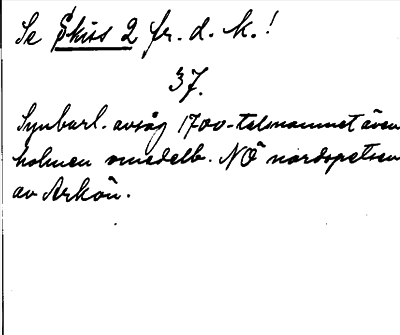 Se Skiss 2 fr. d. k.!
37.
Synbarl. avsåg 1700-talsnamnet även
holmen omedelb. NÖ nordspetsen
av Arkön.